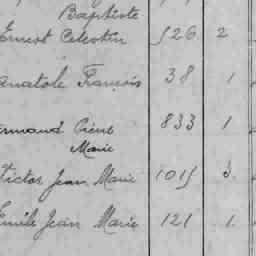 Baptiste
Ernest Celestin 526 2
Anatole François 38 1
Armand Pierre 833 1
Marie
Victor Jean Marie 1015 3.
Emile Jean Marie 121 1.